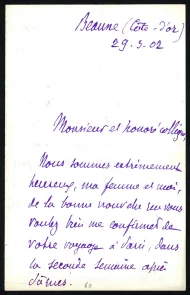 Beaune (Côte-d'or)
29.3.02
Monsieur et honoré collègue,
Nous sommes extrêmement
heureux, ma femme et moi,
de la bonne nouvelle que vous
voulez bien me confirmer de
votre voyage à Paris, dans
la seconde semaine après
Pâques.